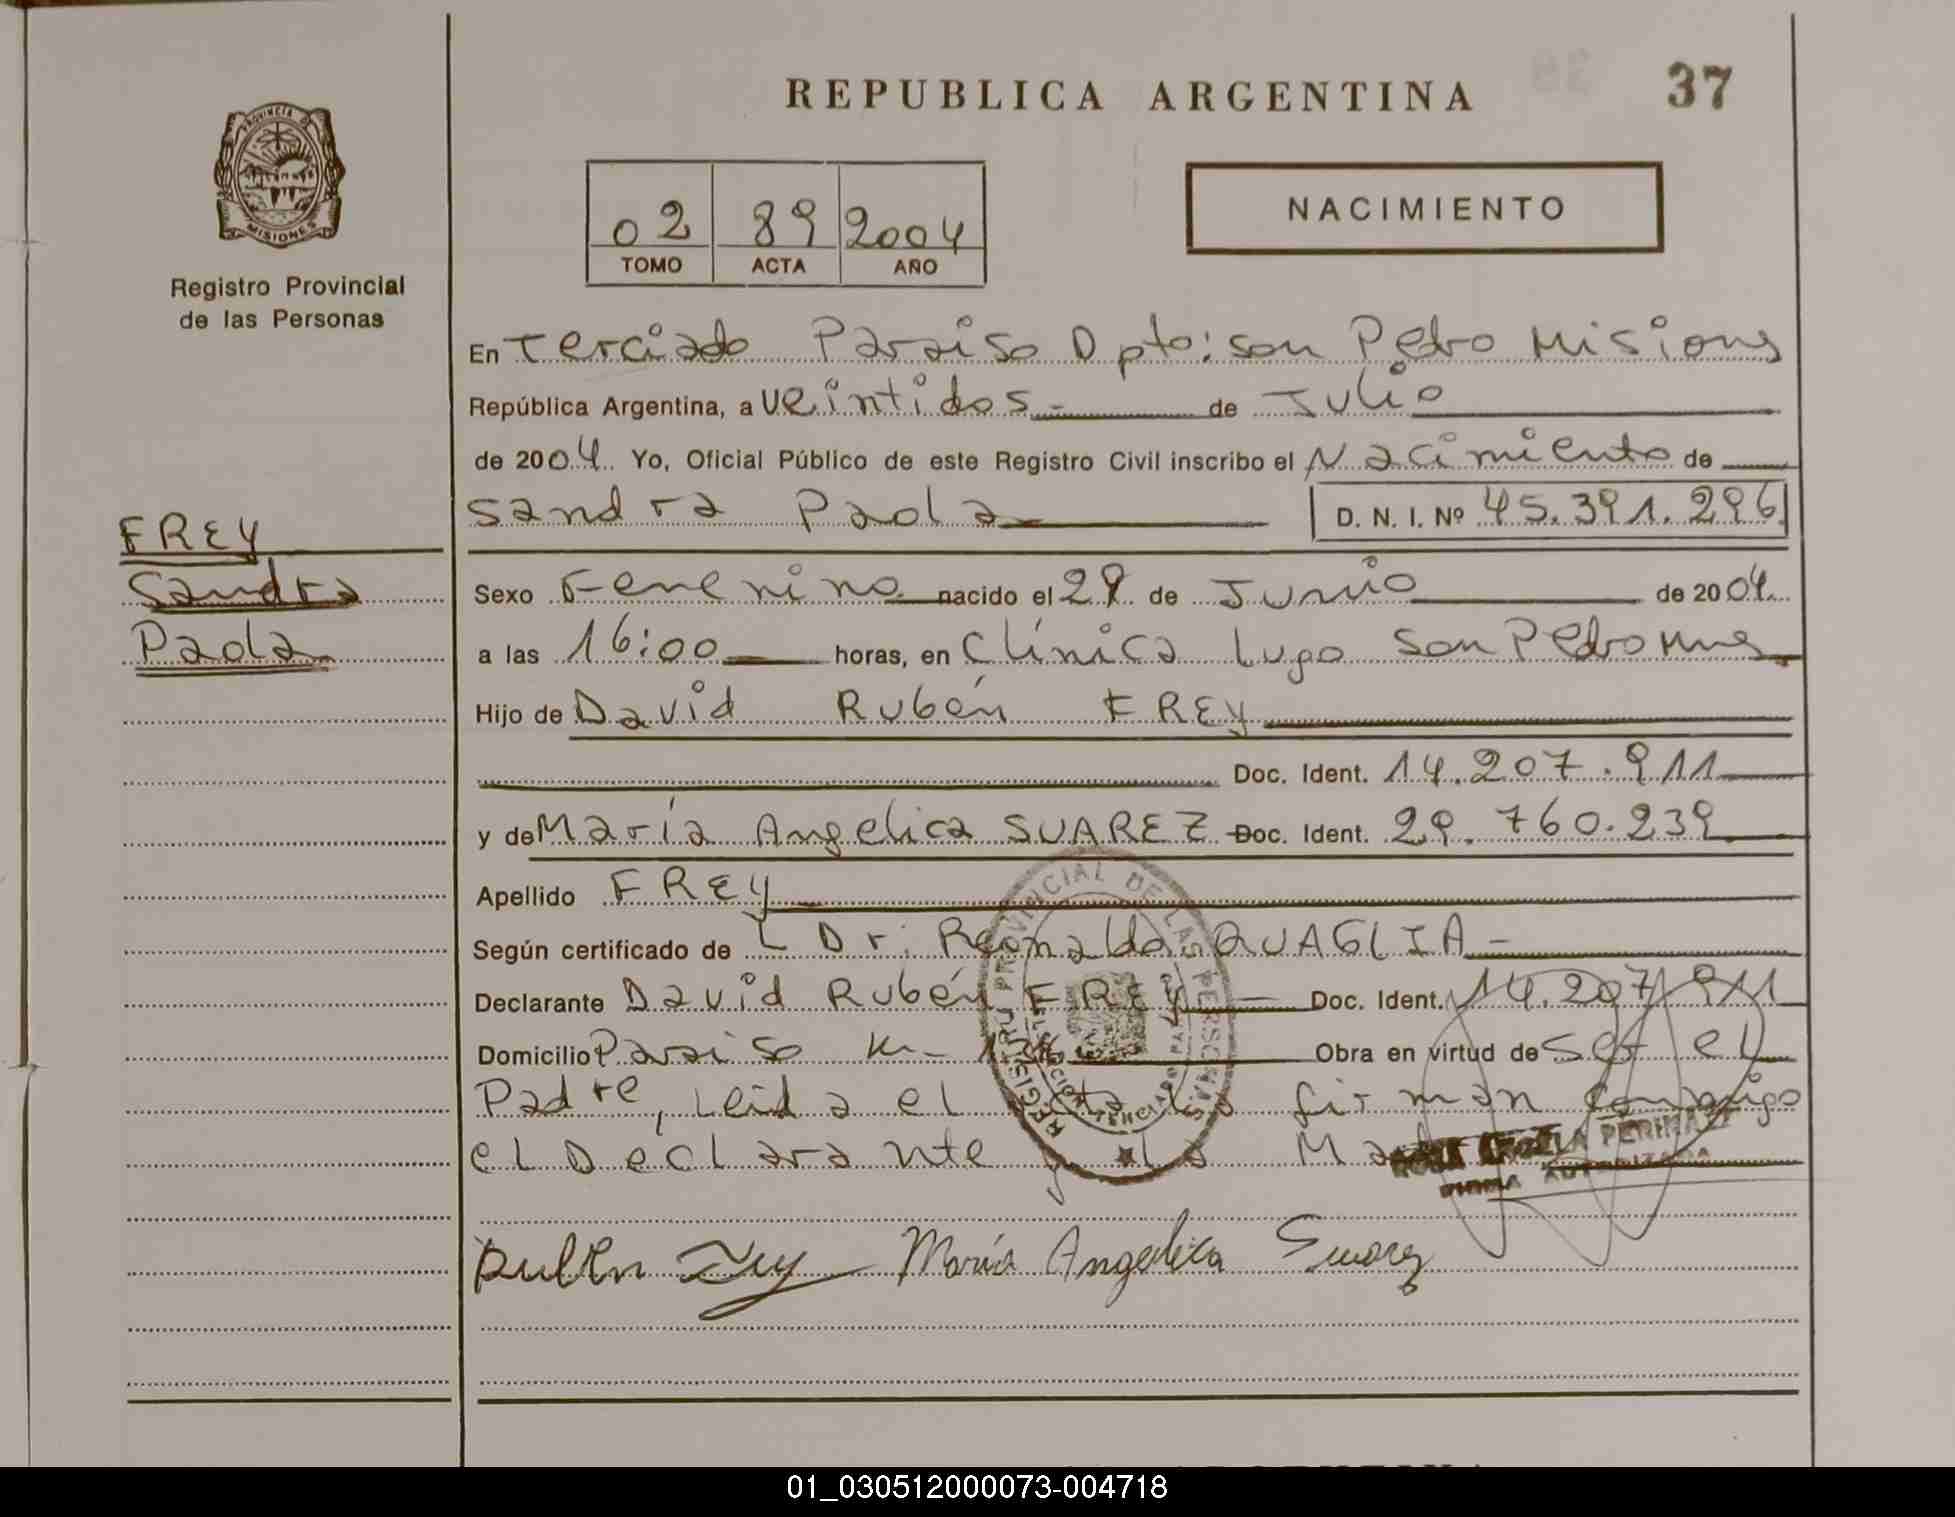 REPUBLICA ARGENTINA
37
PROVINCIA D
MISIONES
Registro Provincial
de las Personas
02 89 2004
TOMO ACTA AÑO
NACIMIENTO
En Terciado Paraiso Dpto: san Pedro Misiones
República Argentina, a veintidos - de Julio
de 2004. Yo, Oficial Público de este Registro Civil inscribo el Nacimiento de
Sandra Paola D. N. I. Nº 45.391.296
FREY
Sandra
Paola
Sexo Femenino nacido el 29 de Junio de 2004
a las 16:00 horas, en Clínica Lugo San Pedro Mnes
Hijo de David Rubén FREY
Doc. Ident. 14.207.911
y de María Angelica SUAREZ Doc. Ident. 29.760.239
Apellido FREY
Según certificado de Dr. QUAGLIA -
Declarante David Rubén FREY Doc. Ident. 14.207.911
Domicilio Paraiso Obra en virtud de ser el
Padre, Leida el firman conmigo
el Declarante y la
REGISTRO PROVINCIAL DE LAS PERSONAS
Ruben Frey María Angelica Suarez
01_030512000073-004718